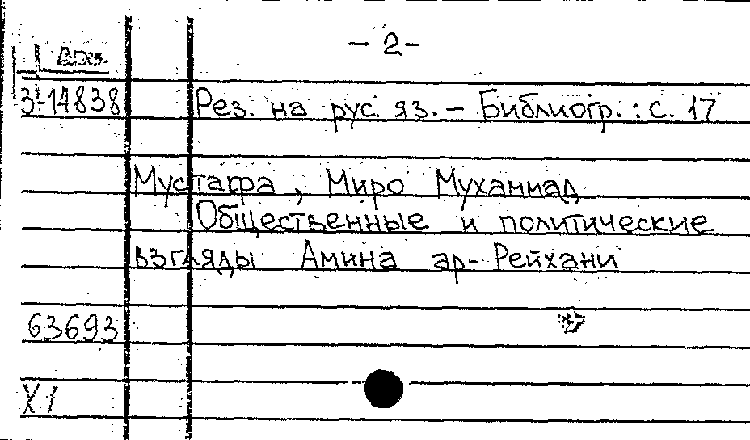 - 2 -
З-14838 Рез. на рус. яз. - Библиогр.: с. 17
Мустафа, Миро Мухаммад
Общественные и политические
взгляды Амина ар-Рейхани
63693
X1